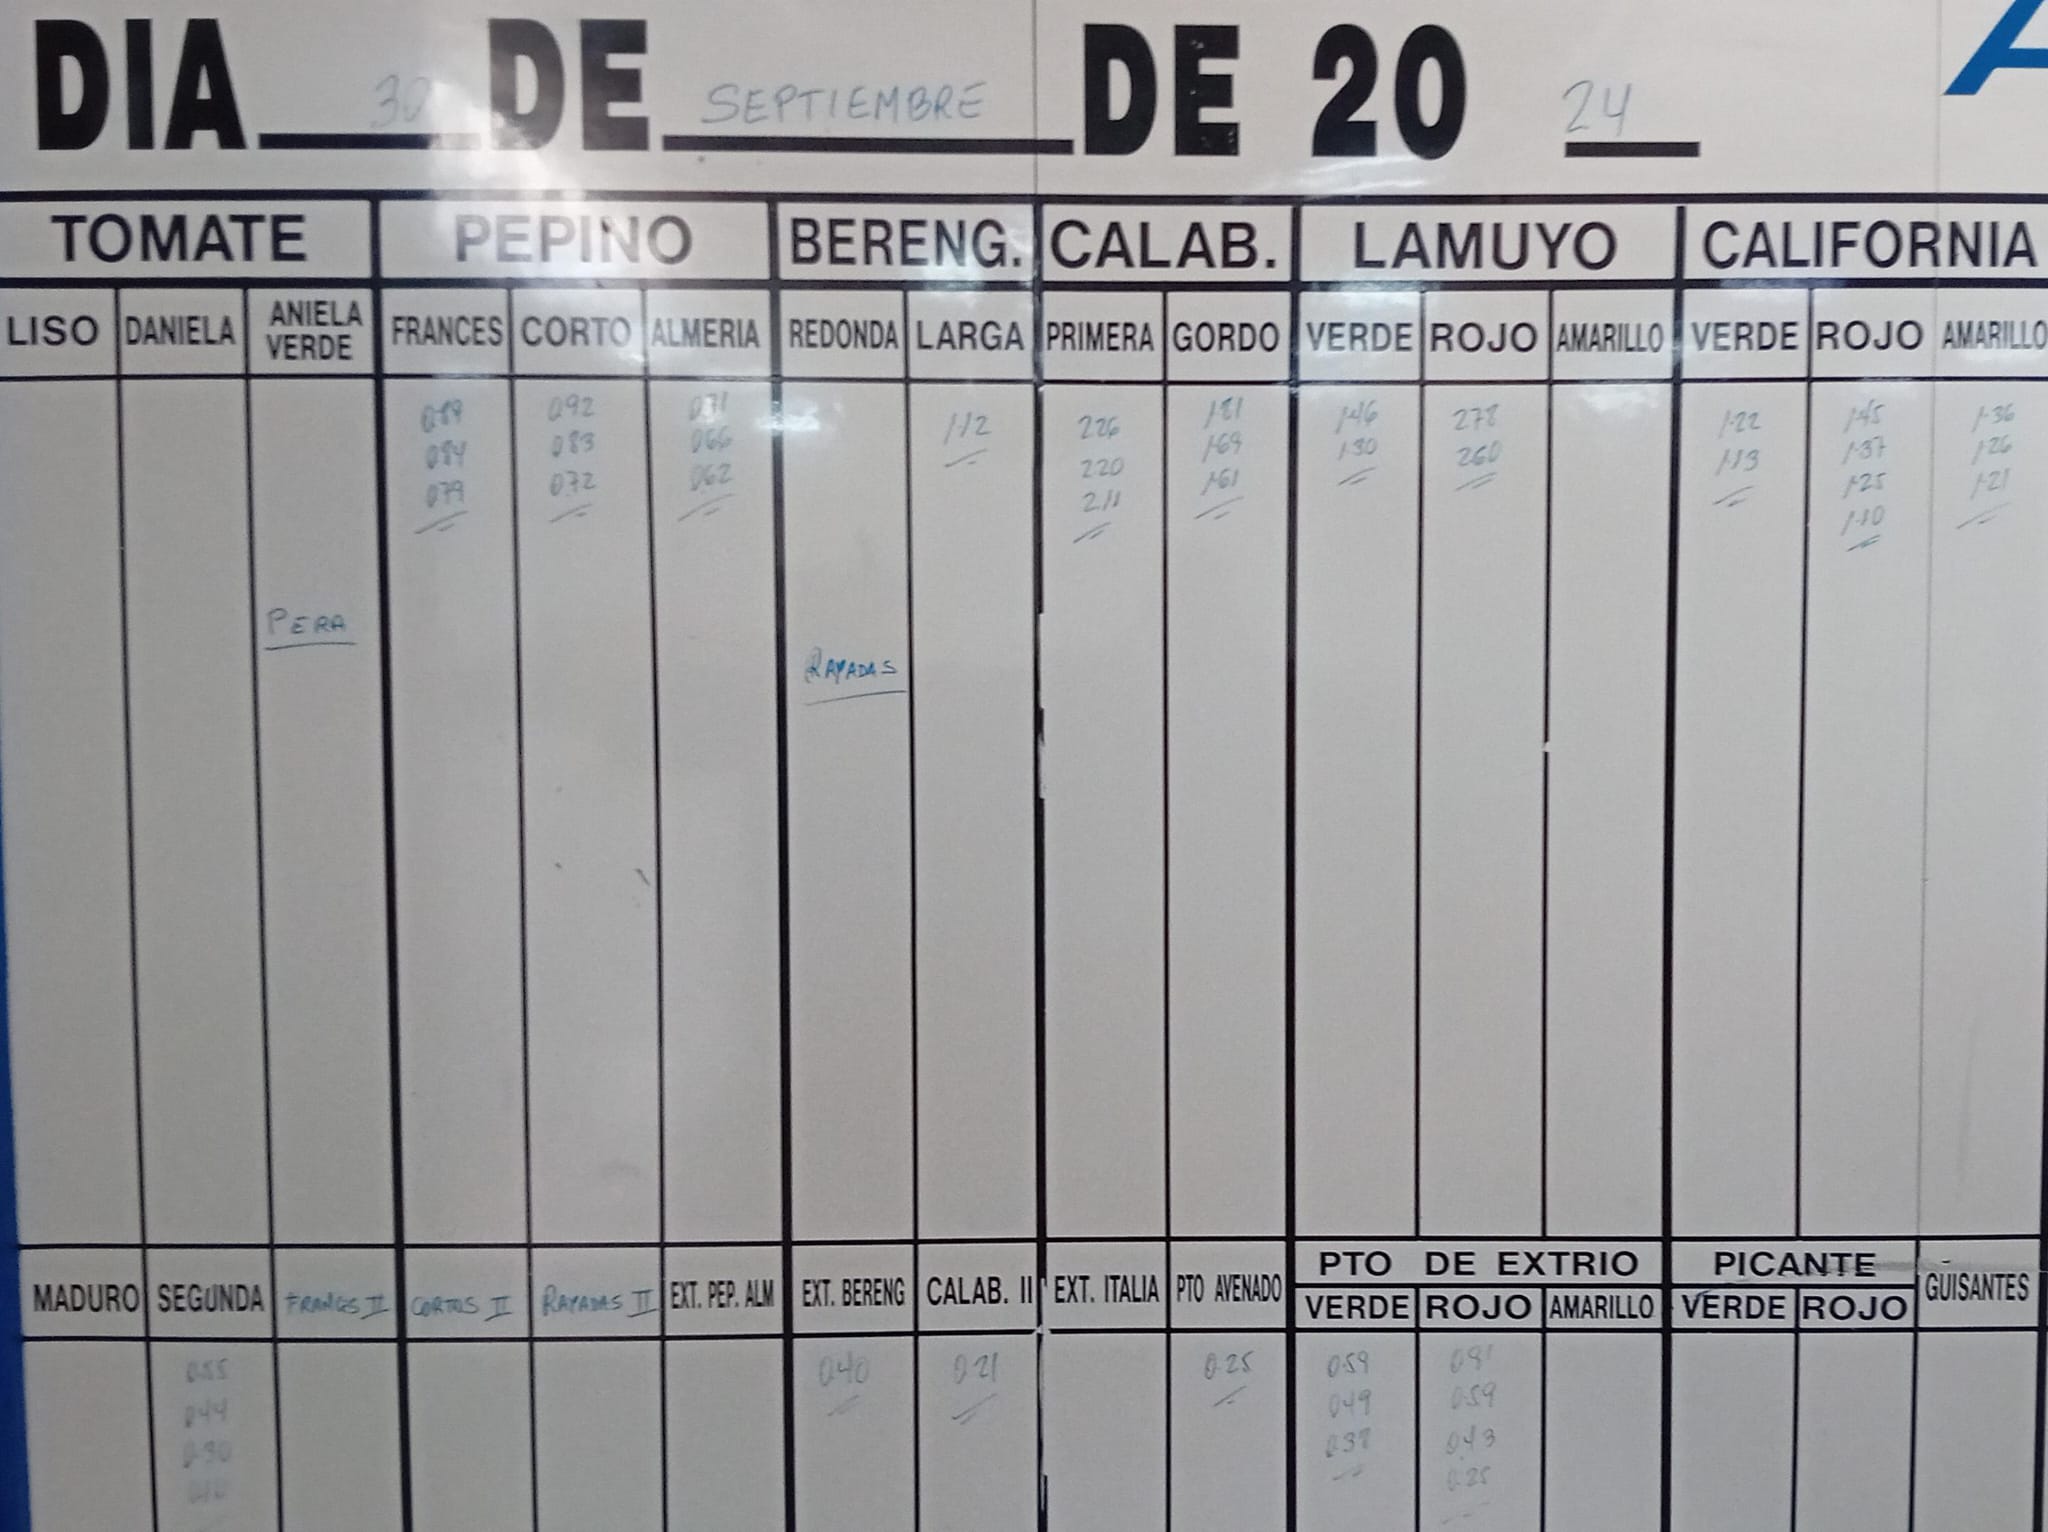 DIA 30 DE SEPTIEMBRE DE 20 24
TOMATE PEPINO BERENG. CALAB. LAMUYO CALIFORNIA
LISO DANIELA ANIELA VERDE FRANCES CORTO ALMERIA REDONDA LARGA PRIMERA GORDO VERDE ROJO AMARILLO VERDE ROJO AMARILLO
0.89 0.92 0.71 1.12 2.26 1.81 1.46 2.78 1.22 1.45 1.36
0.84 0.83 0.66 2.20 1.69 1.30 2.60 1.13 1.37 1.26
0.79 0.72 0.62 2.11 1.61 1.25 1.21
1.10
PERA
RAYADAS
PTO DE EXTRIO PICANTE
MADURO SEGUNDA FRANCES II CORTOS II RAYADAS II EXT. PEP. ALM EXT. BERENG CALAB. II EXT. ITALIA PTO AVENADO VERDE ROJO AMARILLO VERDE ROJO GUISANTES
0.55 0.40 0.21 0.25 0.59
0.44 0.49 0.59
0.30 0.43
0.25